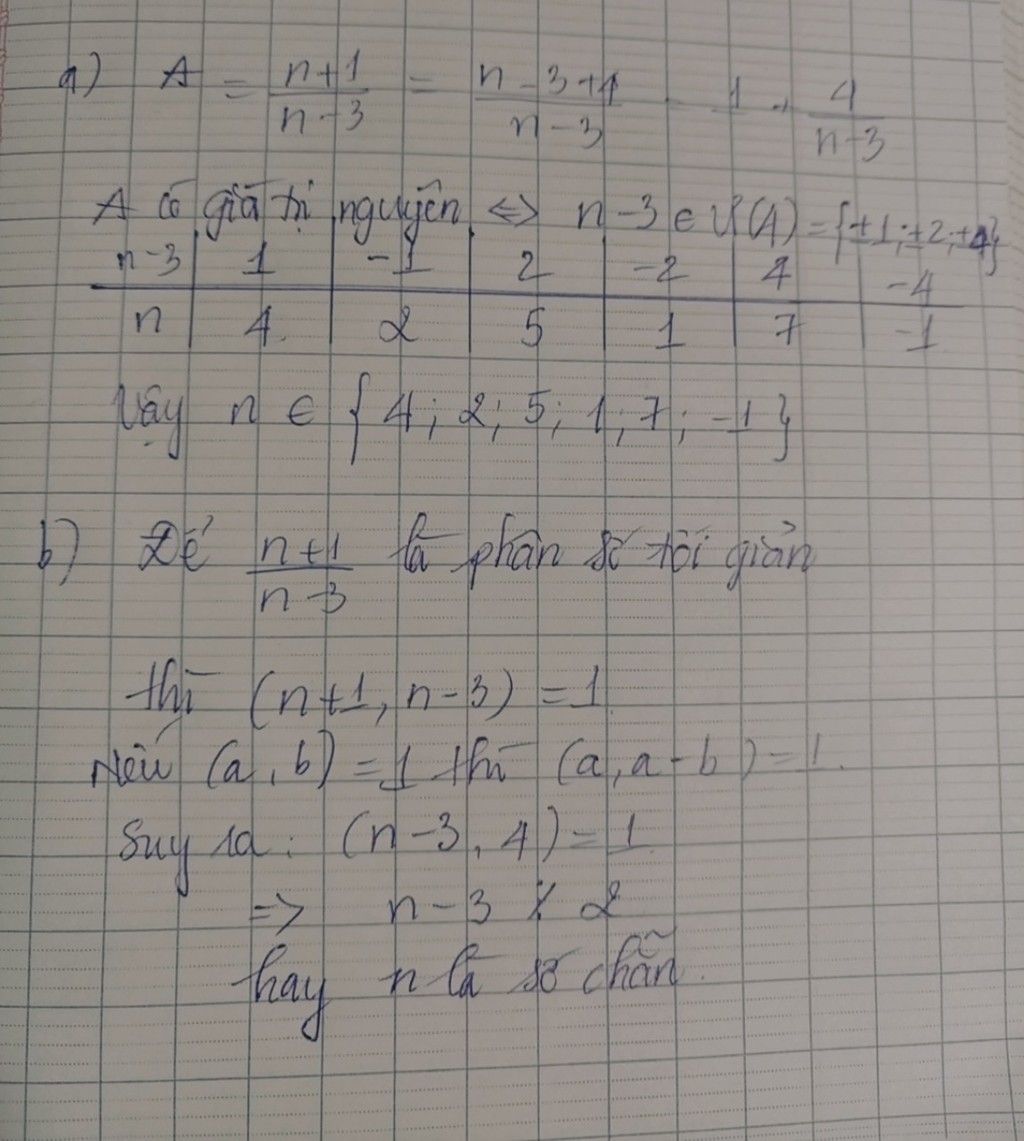 a) A = \frac{n+1}{n-3} = \frac{n-3+4}{n-3} = 1 + \frac{4}{n-3}
A có giá trị nguyên <=> n-3 ∈ Ư(4) = {±1; ±2; ±4}
n-3 | 1 | -1 | 2 | -2 | 4 | -4
n | 4 | 2 | 5 | 1 | 7 | -1
Vậy n ∈ { 4; 2; 5; 1; 7; -1 }
b) Để \frac{n+1}{n-3} là phân số tối giản
thì (n+1, n-3) = 1
Nếu (a, b) = 1 thì (a, a-b) = 1.
Suy ra: (n-3, 4) = 1
=> n-3 ⋮̸ 2
hay n là số chẵn.